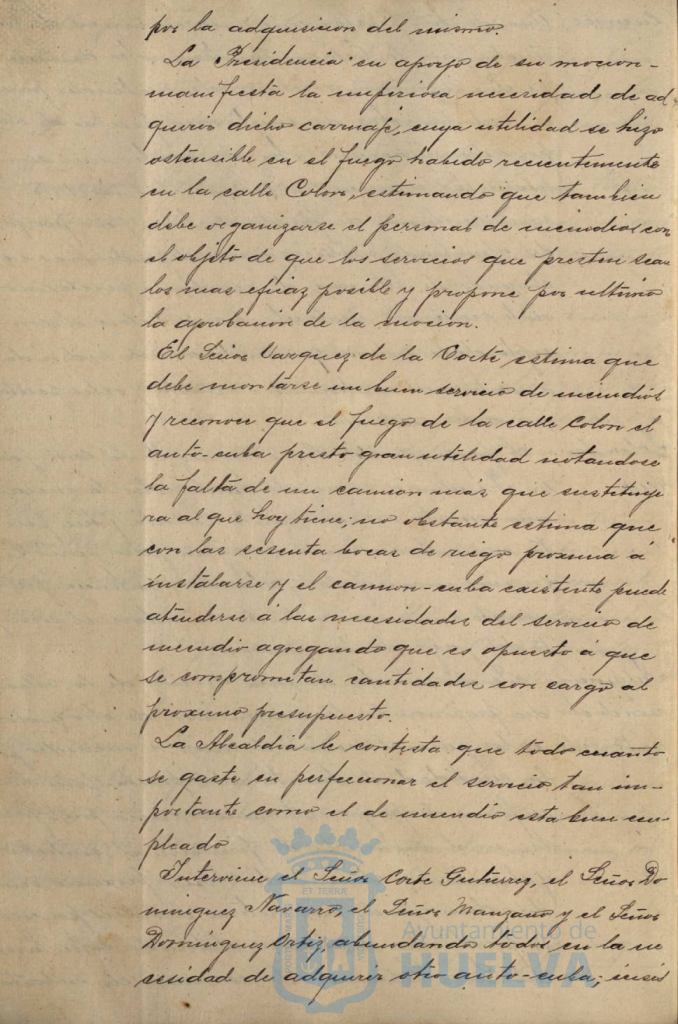 por la adquisicion del mismo.
La Presidencia en apoyo de su mocion-
manifiesta la imperiosa necesidad de ad
quirir dicho carruaje, cuya utilidad se hizo
ostensible en el fuego habido recientemente
en la calle Colon, estimando que tambien
debe organizarse el personal de incendios con
el objeto de que los servicios que presten sean
los mas eficaz posible y propone por ultimo
la aprobacion de la mocion.
El Señor Vazquez de la Corte estima que
debe montarse un buen servicio de incendios
y reconoce que el fuego de la calle Colon el
auto-cuba presto gran utilidad notandose
la falta de un camion más que sustituye
ra al que hoy tiene; no obstante estima que
con las sesenta bocas de riego proxima á
instalarse y el camion-cuba existente puede
atenderse á las necesidades del servicio de
incendio agregando que es opuesto á que
se comprometan cantidades con cargo al
proximo presupuesto.
La Alcaldia le contesta que todo cuanto
se gaste en perfeccionar el servicio tan im-
portante como el de incendio esta bien em-
pleado
Interviene el Señor Corte Gutierrez, el Señor Do
minguez Navarro, el Señor Manzano y el Señor
Dominguez Ortiz, abundando todos en la ne
cesidad de adquirir otro auto-cuba; insis
ET TERRA
Ayuntamiento de
HUELVA